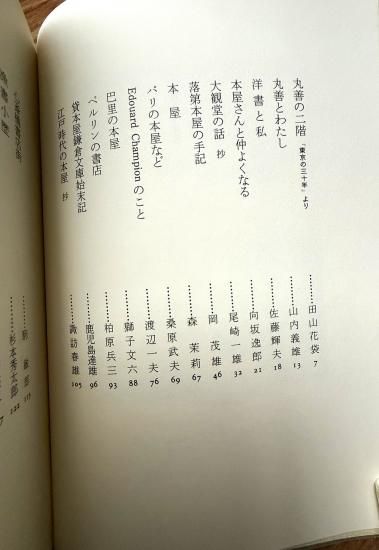 丸善の二階 「東京の三十年」より……田山花袋 7
丸善とわたし……山内義雄 13
洋書と私……佐藤輝夫 18
本屋さんと仲よくなる……向坂逸郎 21
大観堂の話 抄……尾崎一雄 32
落第本屋の手記……岡 茂雄 46
本屋……森 茉莉 67
パリの本屋など……桑原武夫 69
Edouard Champion のこと……渡辺一夫 76
巴里の本屋……獅子文六 88
ベルリンの書店……柏原兵三 93
貸本屋鎌倉文庫始末記……鹿児島達雄 96
江戸時代の本屋 抄……諏訪春雄 105
115
杉本秀太郎 122